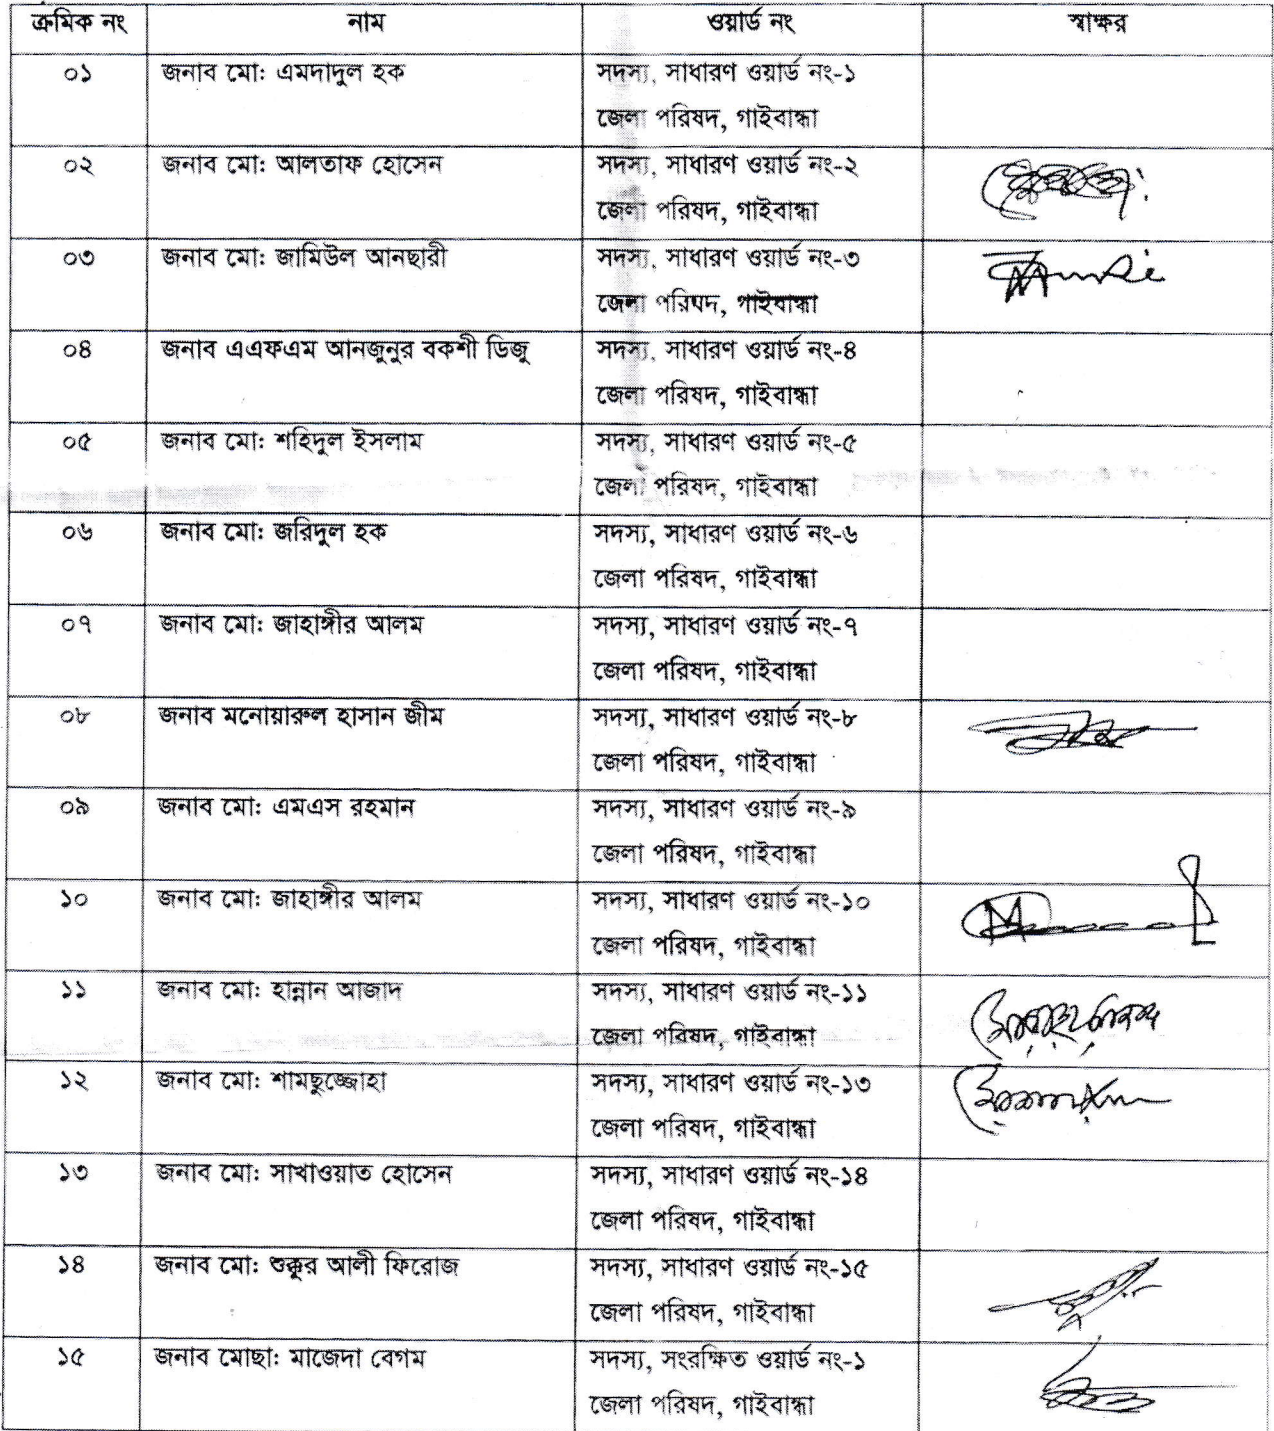 ক্রমিক নং নাম ওয়ার্ড নং স্বাক্ষর
০১ জনাব মো: এমদাদুল হক সদস্য, সাধারণ ওয়ার্ড নং-১
জেলা পরিষদ, গাইবান্ধা
০২ জনাব মো: আলতাফ হোসেন সদস্য, সাধারণ ওয়ার্ড নং-২
জেলা পরিষদ, গাইবান্ধা
০৩ জনাব মো: জামিউল আনছারী সদস্য, সাধারণ ওয়ার্ড নং-৩
জেলা পরিষদ, গাইবান্ধা
০৪ জনাব এএফএম আনজুনুর বকশী ডিজু সদস্য, সাধারণ ওয়ার্ড নং-৪
জেলা পরিষদ, গাইবান্ধা
০৫ জনাব মো: শহিদুল ইসলাম সদস্য, সাধারণ ওয়ার্ড নং-৫
জেলা পরিষদ, গাইবান্ধা
০৬ জনাব মো: জরিদুল হক সদস্য, সাধারণ ওয়ার্ড নং-৬
জেলা পরিষদ, গাইবান্ধা
০৭ জনাব মো: জাহাঙ্গীর আলম সদস্য, সাধারণ ওয়ার্ড নং-৭
জেলা পরিষদ, গাইবান্ধা
০৮ জনাব মনোয়ারুল হাসান জীম সদস্য, সাধারণ ওয়ার্ড নং-৮
জেলা পরিষদ, গাইবান্ধা
০৯ জনাব মো: এমএস রহমান সদস্য, সাধারণ ওয়ার্ড নং-৯
জেলা পরিষদ, গাইবান্ধা
১০ জনাব মো: জাহাঙ্গীর আলম সদস্য, সাধারণ ওয়ার্ড নং-১০
জেলা পরিষদ, গাইবান্ধা
১১ জনাব মো: হান্নান আজাদ সদস্য, সাধারণ ওয়ার্ড নং-১১
জেলা পরিষদ, গাইবান্ধা
১২ জনাব মো: শামছুজ্জোহা সদস্য, সাধারণ ওয়ার্ড নং-১৩
জেলা পরিষদ, গাইবান্ধা
১৩ জনাব মো: সাখাওয়াত হোসেন সদস্য, সাধারণ ওয়ার্ড নং-১৪
জেলা পরিষদ, গাইবান্ধা
১৪ জনাব মো: শুক্কুর আলী ফিরোজ সদস্য, সাধারণ ওয়ার্ড নং-১৫
জেলা পরিষদ, গাইবান্ধা
১৫ জনাব মোছা: মাজেদা বেগম সদস্য, সংরক্ষিত ওয়ার্ড নং-১
জেলা পরিষদ, গাইবান্ধা